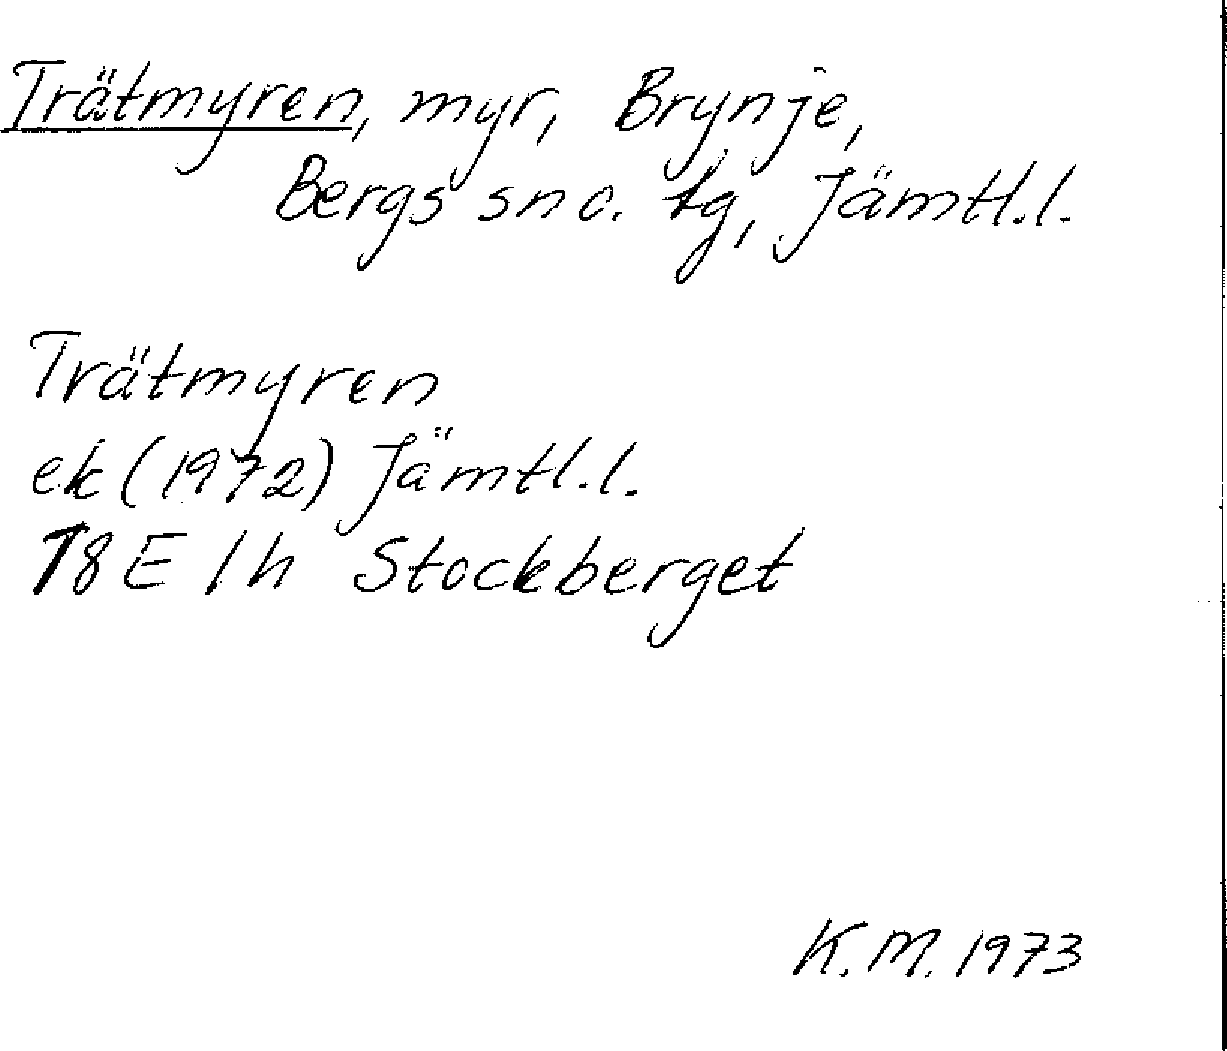 Trätmyren, myr, Brynje,
Bergs sn o. tg, Jämtl.l.
Trätmyren
ek (1972) Jämtl.l.
18E 1h Stockberget
K.M. 1973